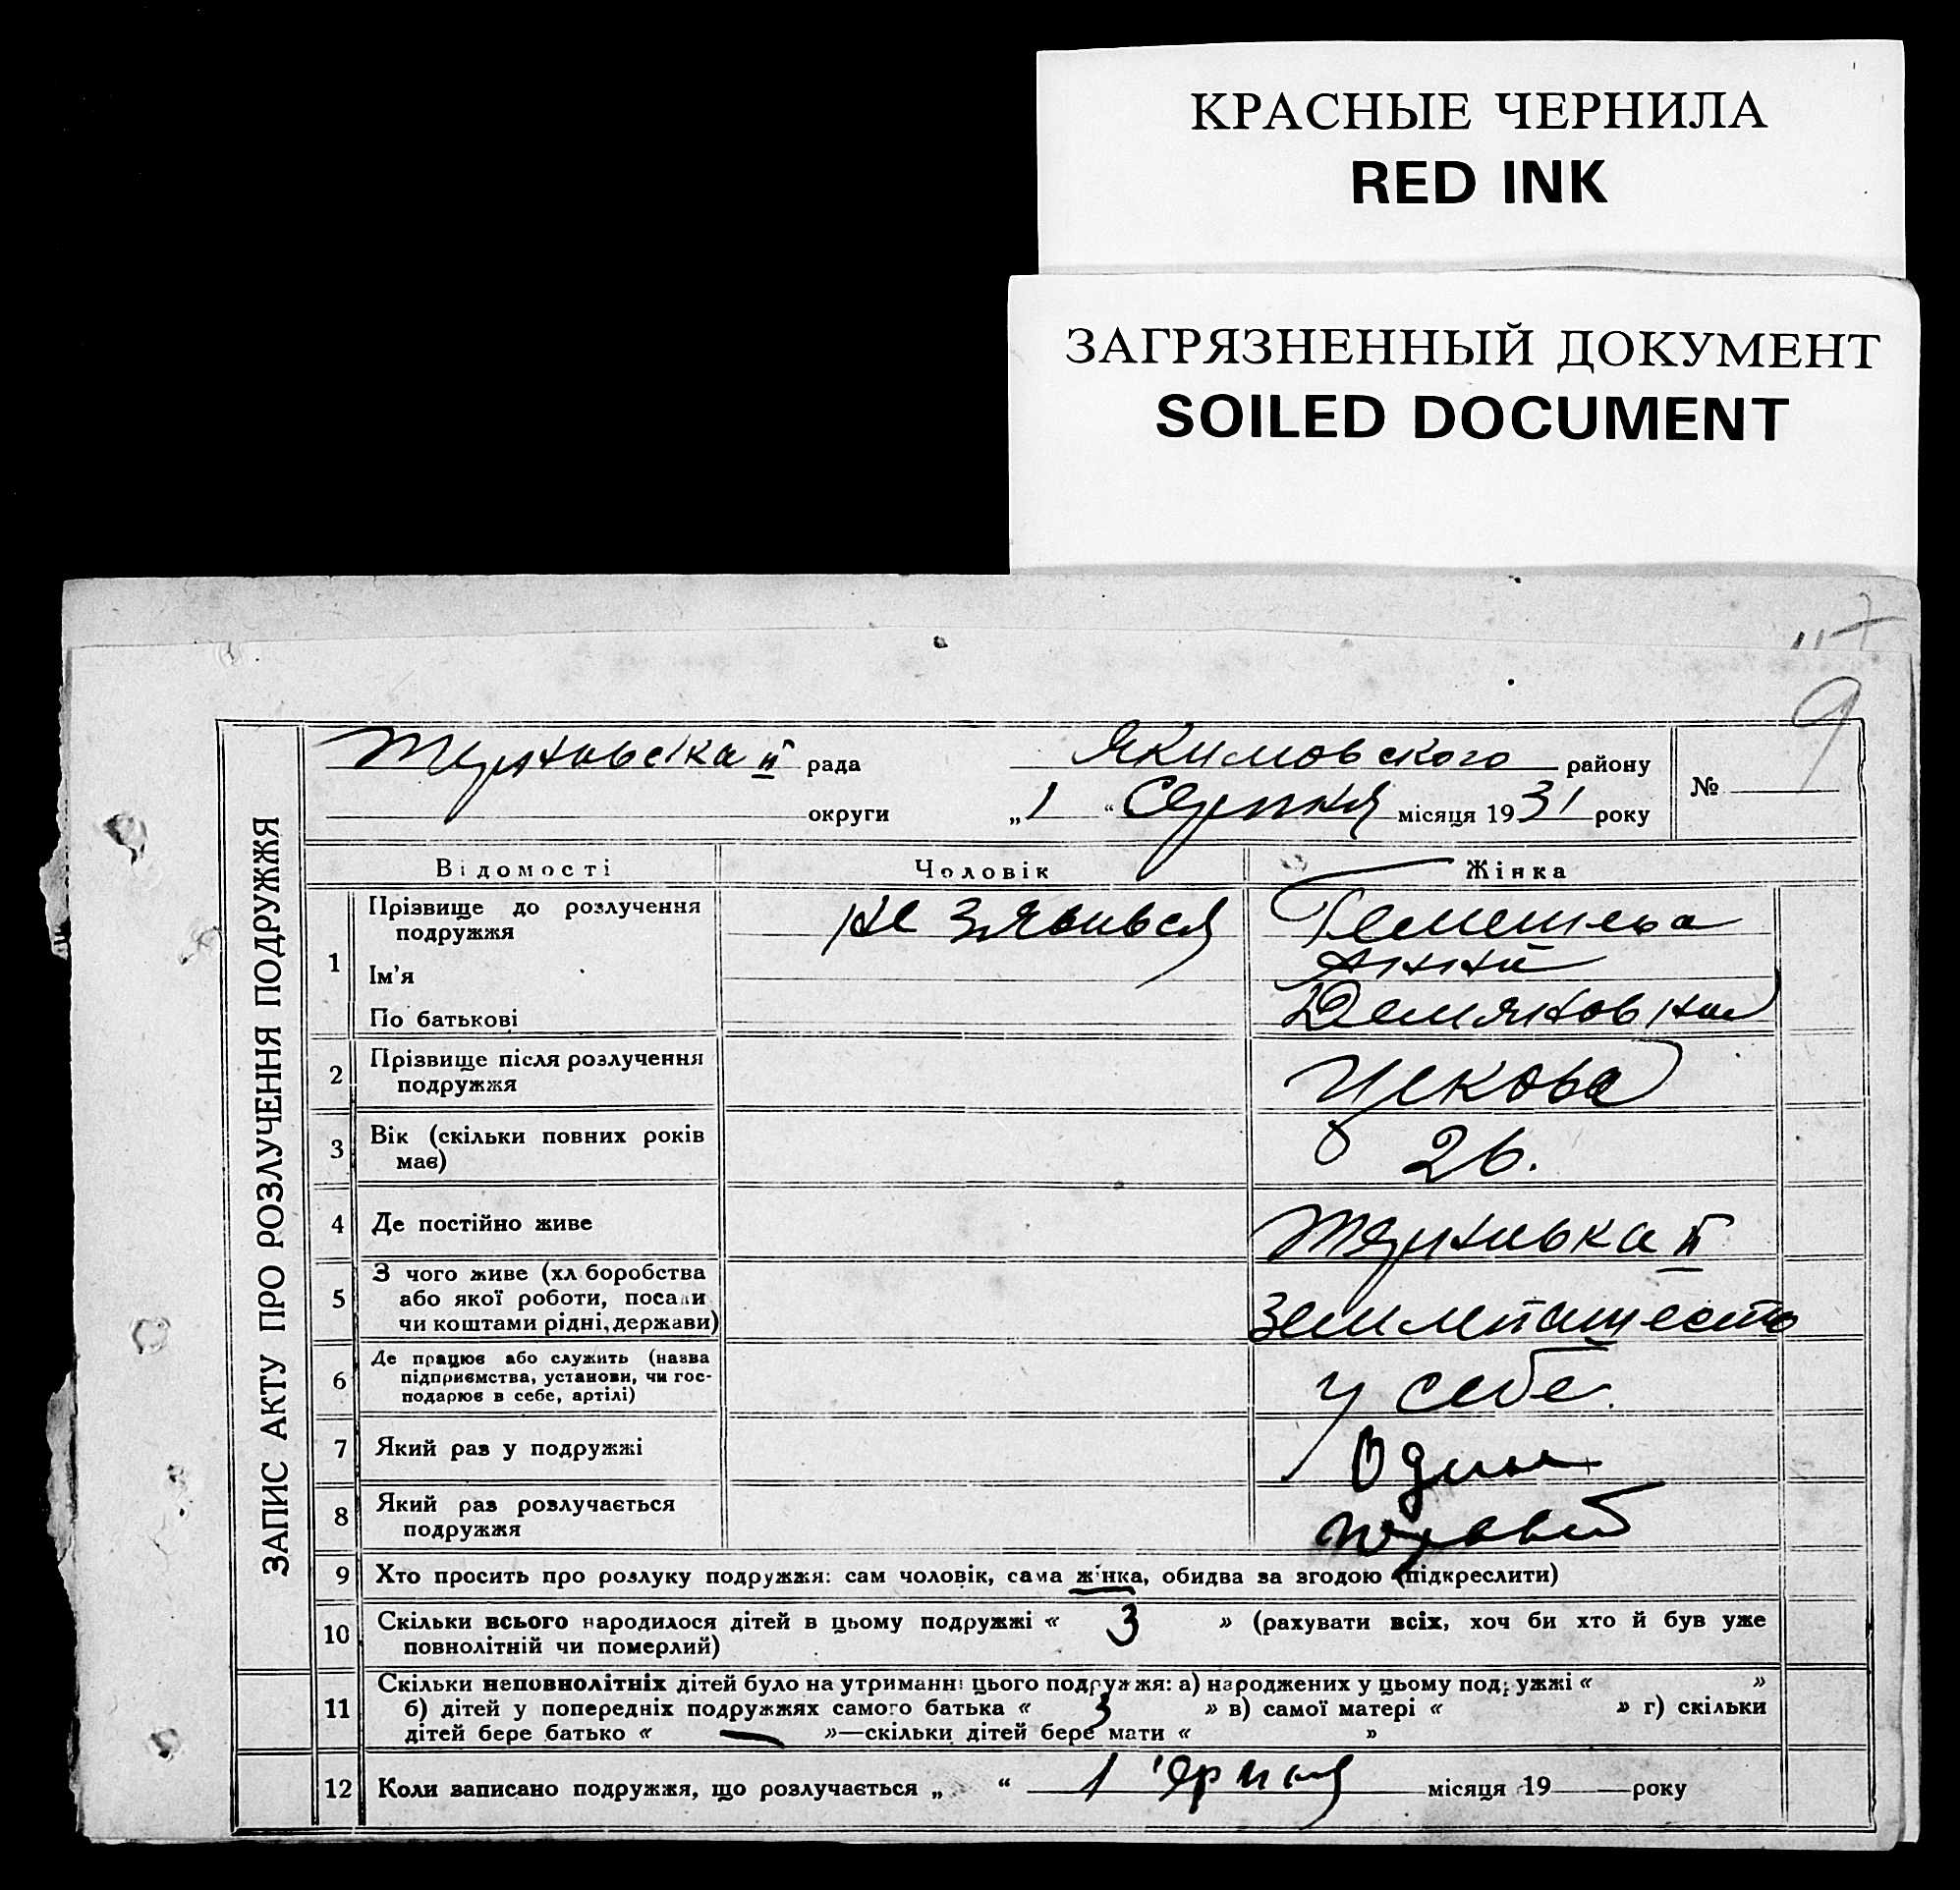 КРАСНЫЕ ЧЕРНИЛА
RED INK
ЗАГРЯЗНЕННЫЙ ДОКУМЕНТ
SOILED DOCUMENT
9
ЗАПИС АКТУ ПРО РОЗЛУЧЕННЯ ПОДРУЖЖЯ
рада Якимовского району №
округи „1“ Серпня місяця 1931 року
Відомості Чоловік Жінка
1 Прізвище до розлучення подружжя не зявився
Ім'я Анна
По батькові
2 Прізвище після розлучення подружжя Цекова
3 Вік (скільки повних років має) 26.
4 Де постійно живе II
5 З чого живе (хліборобства або якої роботи, посади чи коштами рідні, держави)
6 Де працює або служить (назва підприємства, установи, чи господарює в себе, артілі) у себе.
7 Який раз у подружжі Один
8 Який раз розлучається подружжя
9 Хто просить про розлуку подружжя: сам чоловік, сама жінка, обидва за згодою (підкреслити)
10 Скільки всього народилося дітей в цьому подружжі « 3 » (рахувати всіх, хоч би хто й був уже
повнолітній чи померлий)
11 Скільки неповнолітніх дітей було на утриманні цього подружжя: а) народжених у цьому подружжі « »
б) дітей у попередніх подружжях самого батька « 3 » в) самої матері « » г) скільки
дітей бере батько « — »—скільки дітей бере мати « »
12 Коли записано подружжя, що розлучається „ “ 1 місяця 19 року